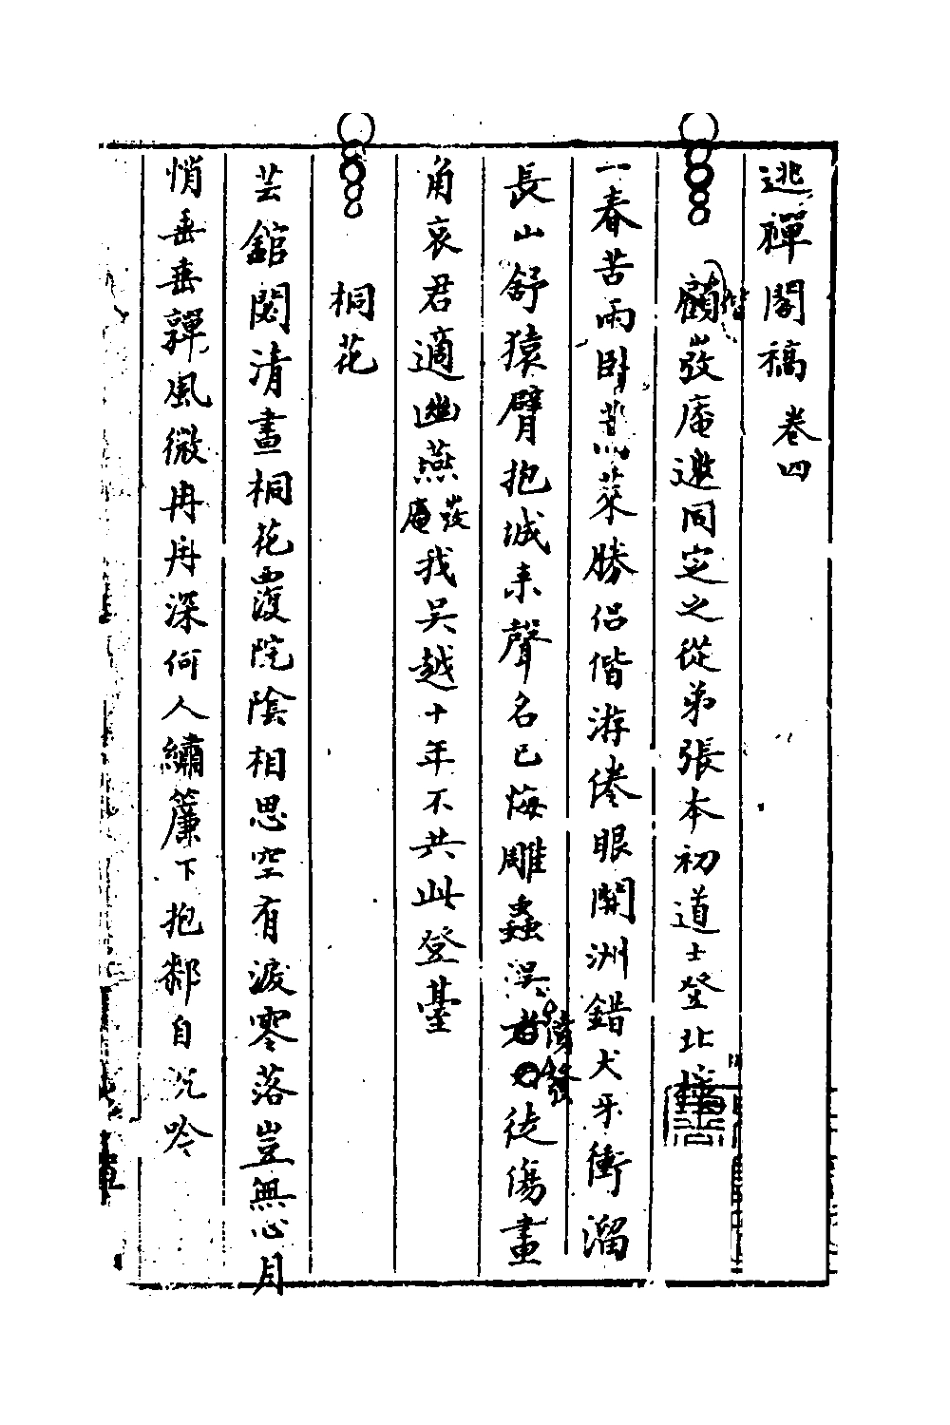 逃禪閣稿 卷四
顧㢸庵邀同定之從弟張本初道士登北
一春苦雨臥蒿萊勝侶偕游倦眼開洲錯犬牙衝溜
長山舒猿臂抱城來聲名已悔雕蟲誤憤發徒傷畫
角哀君適幽燕㢸庵我吳越十年不共此登臺
桐花
芸館閟清晝桐花覆院陰相思空有淚零落豈無心月
悄垂垂嚲風微冉冉深何人繡簾下抱郗自沉吟